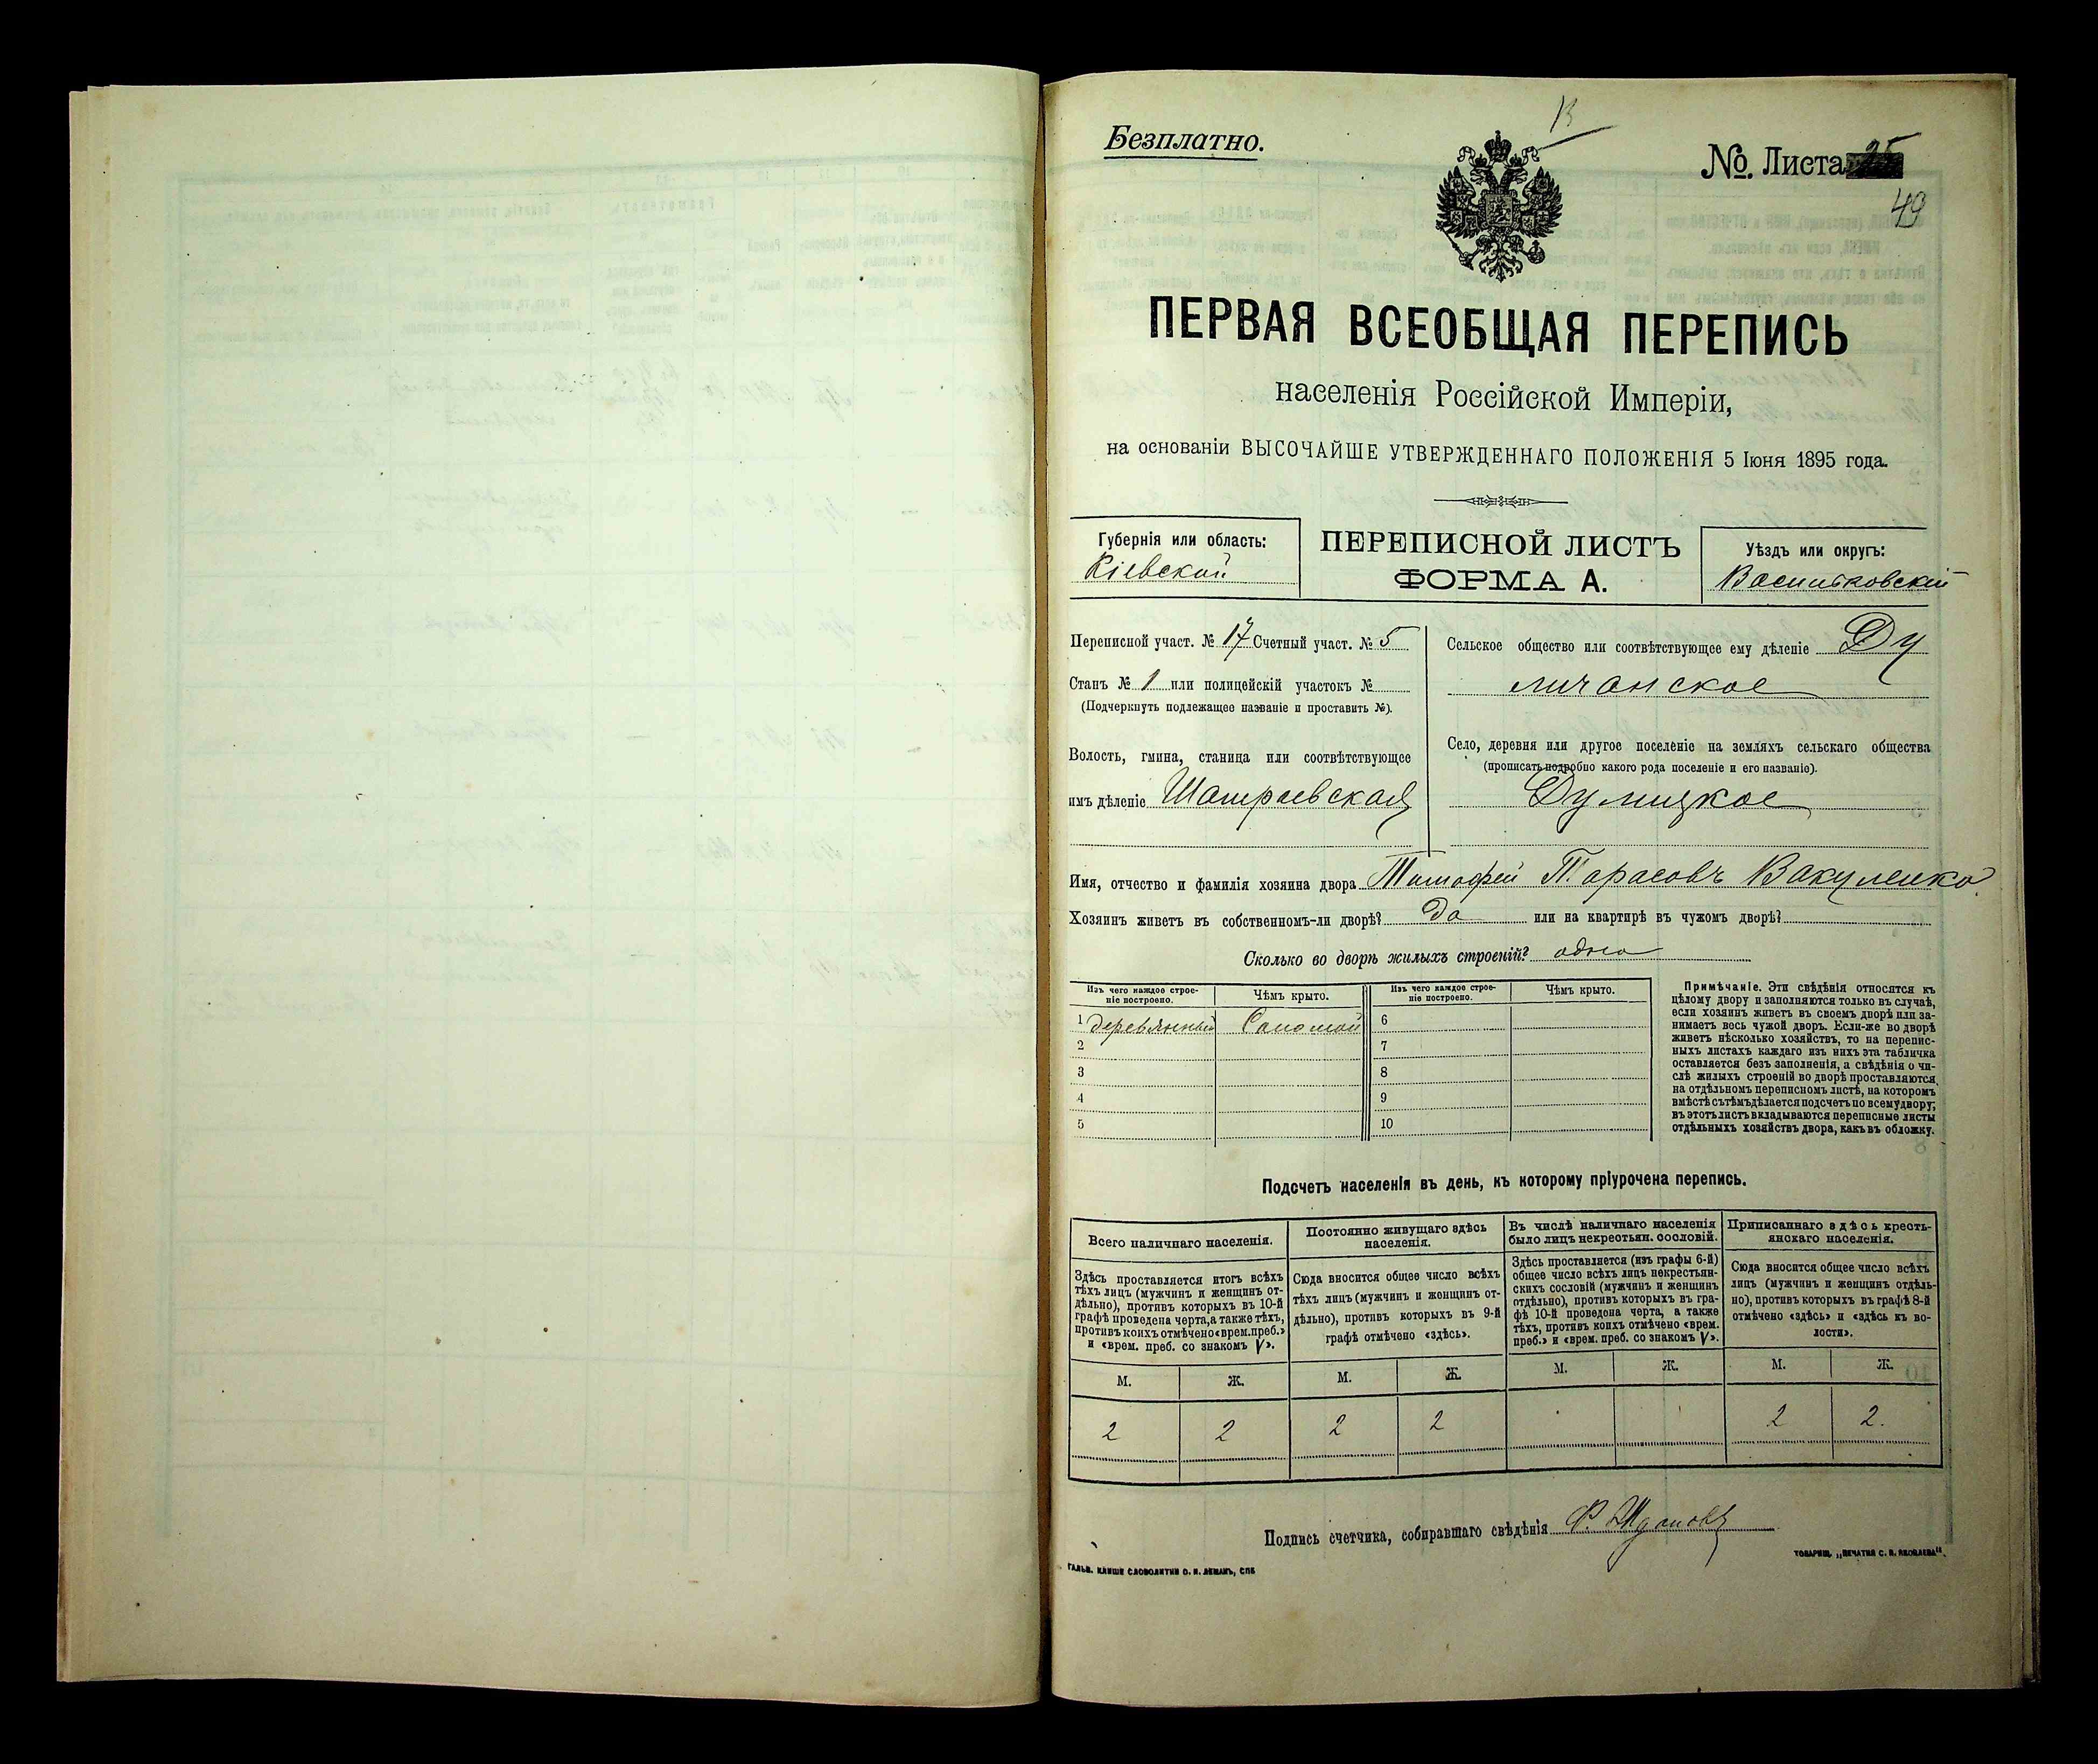 Безплатно.
13
№. Листа 25
49
ПЕРВАЯ ВСЕОБЩАЯ ПЕРЕПИСЬ
населенія Россійской Имперіи,
на основаніи ВЫСОЧАЙШЕ УТВЕРЖДЕННАГО ПОЛОЖЕНІЯ 5 Іюня 1895 года.
Губернія или область:
Кіевской
ПЕРЕПИСНОЙ ЛИСТЪ
ФОРМА А.
Уѣздъ или округъ:
Васильковскій
Переписной участ. № 17 Счетный участ. № 5
Станъ № 1 или полицейскій участокъ №
(Подчеркнуть подлежащее названіе и проставить №).
Волость, гмина, станица или соотвѣтствующее
имъ дѣленіе Шамраевская
Сельское общество или соотвѣтствующее ему дѣленіе Ду
личанское
Село, деревня или другое поселеніе на земляхъ сельскаго общества
(прописать подробно какого рода поселеніе и его названіе).
Дулицкое
Имя, отчество и фамилія хозяина двора Тимофей Тарасовъ Вакуленко
Хозяинъ живетъ въ собственномъ-ли дворѣ? Да или на квартирѣ въ чужомъ дворѣ?
Сколько во дворѣ жилыхъ строеній? одно
Изъ чего каждое строе-
ніе построено.
Чѣмъ крыто.
Изъ чего каждое строе-
ніе построено.
Чѣмъ крыто.
1 деревянный Соломой 6
2 7
3 8
4 9
5 10
Примѣчаніе. Эти свѣдѣнія относятся къ
цѣлому двору и заполняются только въ случаѣ,
если хозяинъ живетъ въ своемъ дворѣ или за-
нимаетъ весь чужой дворъ. Если-же во дворѣ
живетъ нѣсколько хозяйствъ, то на перепис-
ныхъ листахъ каждаго изъ нихъ эта табличка
оставляется безъ заполненія, а свѣдѣнія о чи-
слѣ жилыхъ строеній во дворѣ проставляются
на отдѣльномъ переписномъ листѣ, на которомъ
вмѣстѣ съ тѣмъ дѣлается подсчетъ по всему двору;
въ этотъ листъ вкладываются переписные листы
отдѣльныхъ хозяйствъ двора, какъ въ обложку.
Подсчетъ населенія въ день, къ которому пріурочена перепись.
Всего наличнаго населенія.
Здѣсь проставляется итогъ всѣхъ
тѣхъ лицъ (мужчинъ и женщинъ от-
дѣльно), противъ которыхъ въ 10-й
графѣ проведена черта, а также тѣхъ,
противъ коихъ отмѣчено «врем. преб.»
и «врем. преб. со знакомъ V».
Постоянно живущаго здѣсь
населенія.
Сюда вносится общее число всѣхъ
тѣхъ лицъ (мужчинъ и женщинъ от-
дѣльно), противъ которыхъ въ 9-й
графѣ отмѣчено «здѣсь».
Въ числѣ наличнаго населенія
было лицъ некрестьян. сословій.
Здѣсь проставляется (изъ графы 6-й)
общее число всѣхъ лицъ некрестьян-
скихъ сословій (мужчинъ и женщинъ
отдѣльно), противъ которыхъ въ гра-
фѣ 10-й проведена черта, а также
тѣхъ, противъ коихъ отмѣчено «врем.
преб.» и «врем. преб. со знакомъ V».
Приписаннаго здѣсь кресть-
янскаго населенія.
Сюда вносится общее число всѣхъ
лицъ (мужчинъ и женщинъ отдѣль-
но), противъ которыхъ въ графѣ 8-й
отмѣчено «здѣсь» и «здѣсь къ во-
лости».
М. Ж. М. Ж. М. Ж. М. Ж.
2 2 2 2 2 2.
Подпись счетчика, собиравшаго свѣдѣнія
ГАЛЬВ. КЛИШЕ СЛОВОЛИТНИ О. И. ЛЕМАНЪ, СПБ
ТОВАРИЩ. „ПЕЧАТНЯ С. П. ЯКОВЛЕВА".